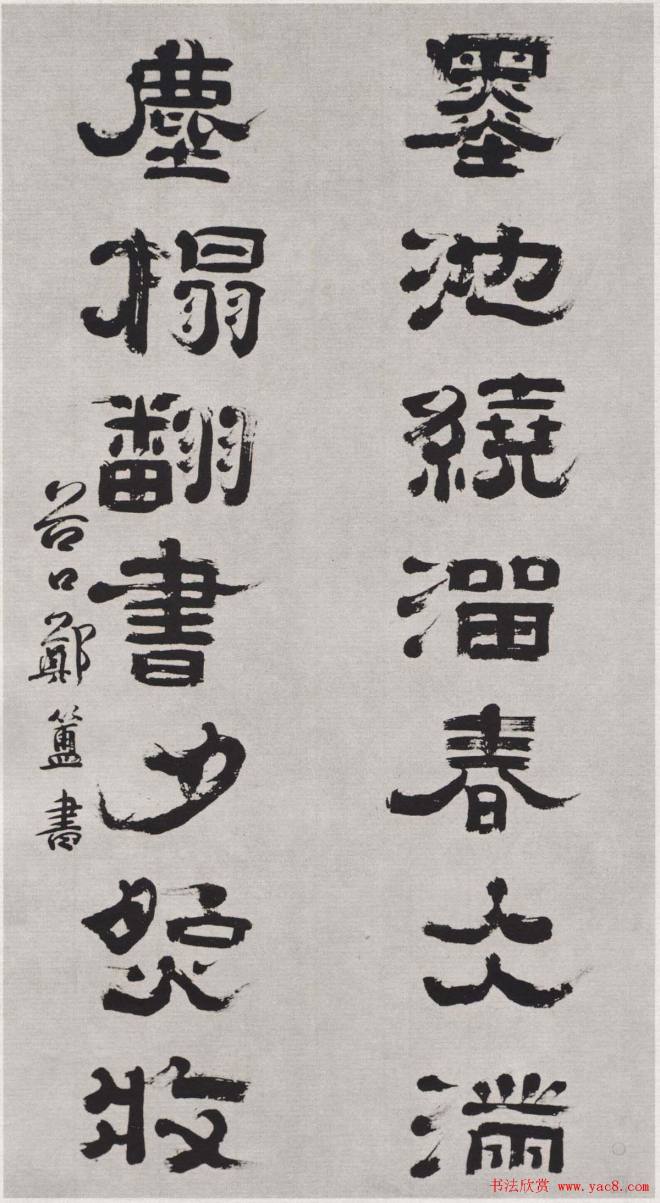 墨池繞溜春滿
塵榻翻書夕收
谷口鄭簠書
书法欣赏 www.yac8.com